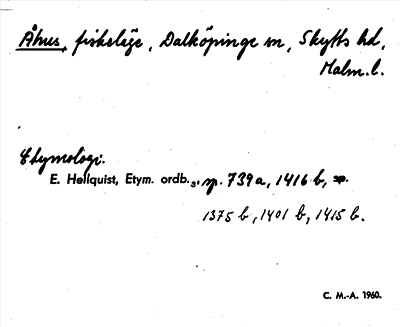 Åhus, fiskeläge, Dalköpinge sn, Skytts hd,
Malm.l.
Etymologi.
E. Hellquist, Etym. ordb.₃, sp. 739a, 1416 b,
1375 b, 1401 b, 1415 b.
C. M.-A. 1960.